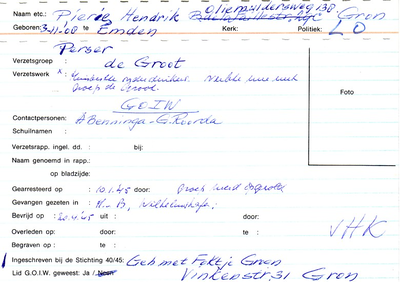 Naam etc.: Pierie Hendrik Oliemuldersweg 138 Gron
Geboren: 3-11-08 te Emden Kerk: Politiek: LO
Perser
Verzetsgroep : de Groot
Verzetswerk x. onderduikers.
groep de Groot
GOIW
Foto
Contactpersonen: A Benninga - G. Roorda
Schuilnaam :
Verzetsrapp. ingel. dd. : bij:
Naam genoemd in rapp.:
op bladzijde:
Gearresteerd op : 10.1.45 door: Groep werd
Gevangen gezeten in : H.-B, Wilhelmshafen
Bevrijd op : 20.4.45 uit : door:
Overleden op: te: door:
VHK
Begraven op : te:
Ingeschreven bij de Stichting 40/45: Geh met Fektje Groen
Lid G.O.I.W. geweest: Ja / Neen Vinkenstr. 31 Gron